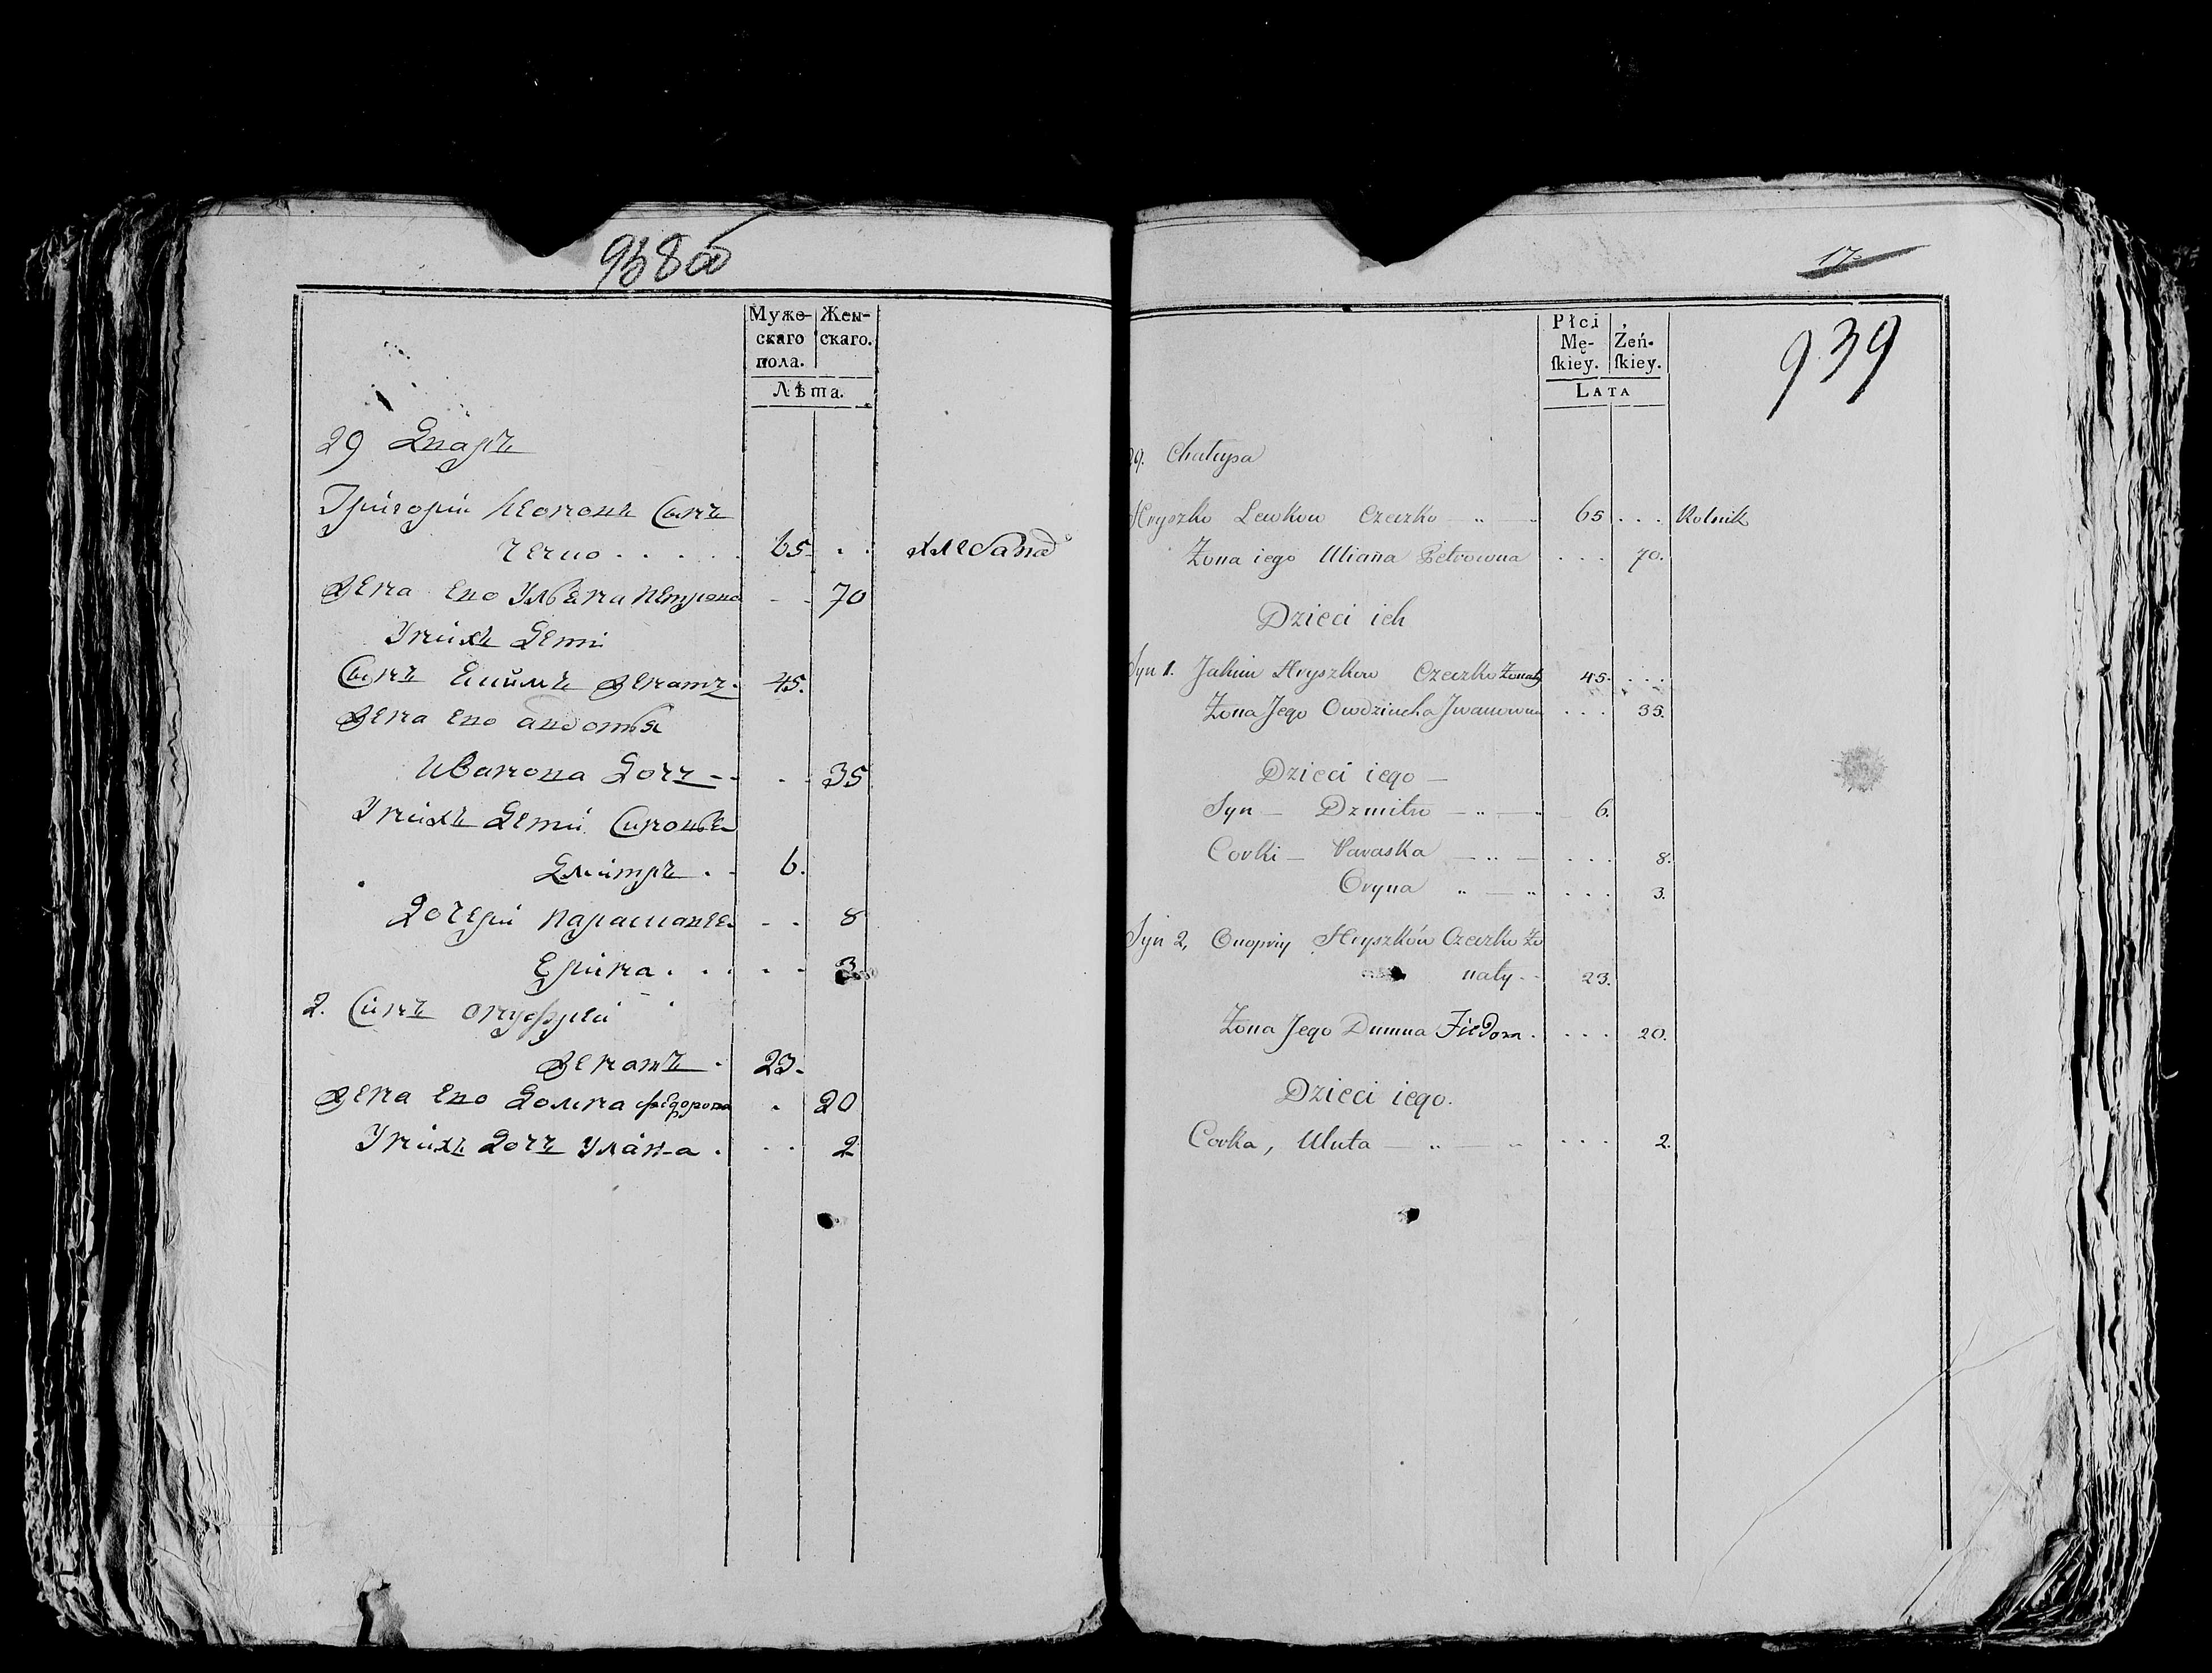 938об
Мужe-
скаго
пола.
Жен-
скаго.
Лѣта.
29 Дваръ
Григорій Леоновъ Сынъ
65 . .
Жена Ево Ульяна Петрова - - 70
Унихъ Дети
Сынъ Екимъ Женатъ. 45.
Жена Ево Авдотья
Иванова Дочъ - - . - 35
Унихъ Дети Сыновья
Дмитръ . - 6.
Дочери - . 8
Ерина . . . - - 3
2. Синъ Онуфрей
Женатъ . 23.
Жена Ево Домна Федорова . 20
Унихъ Дочъ Уляна . - . 2
17
939
Płci
Mę-
ſkiey.
Żeń-
ſkiey.
LATA
29. Chałupa
Hryszko Lewkow Czeczko - „ - 65 . . . Rolnik
Żona iego Uliana Petrowna . . . 70.
Dzieci ich
Syn 1. Jakim Hryszkow Czeczko Żonaty 45. . . .
Żona Jego Owdziucha Jwanowna . . . 35.
Dzieci iego —
Syn — Dzmitro — „ — „ 6.
Corki — Paraska — „ — . . . 8.
Oryna „ — „ . . . 3.
Syn 2, Onopriy Hryszków Czeczko Żo
naty - - 23.
Żona Jego Dumna Fiedora . . . . 20.
Dzieci iego.
Corka, Uluta — „ — „ . . . 2.